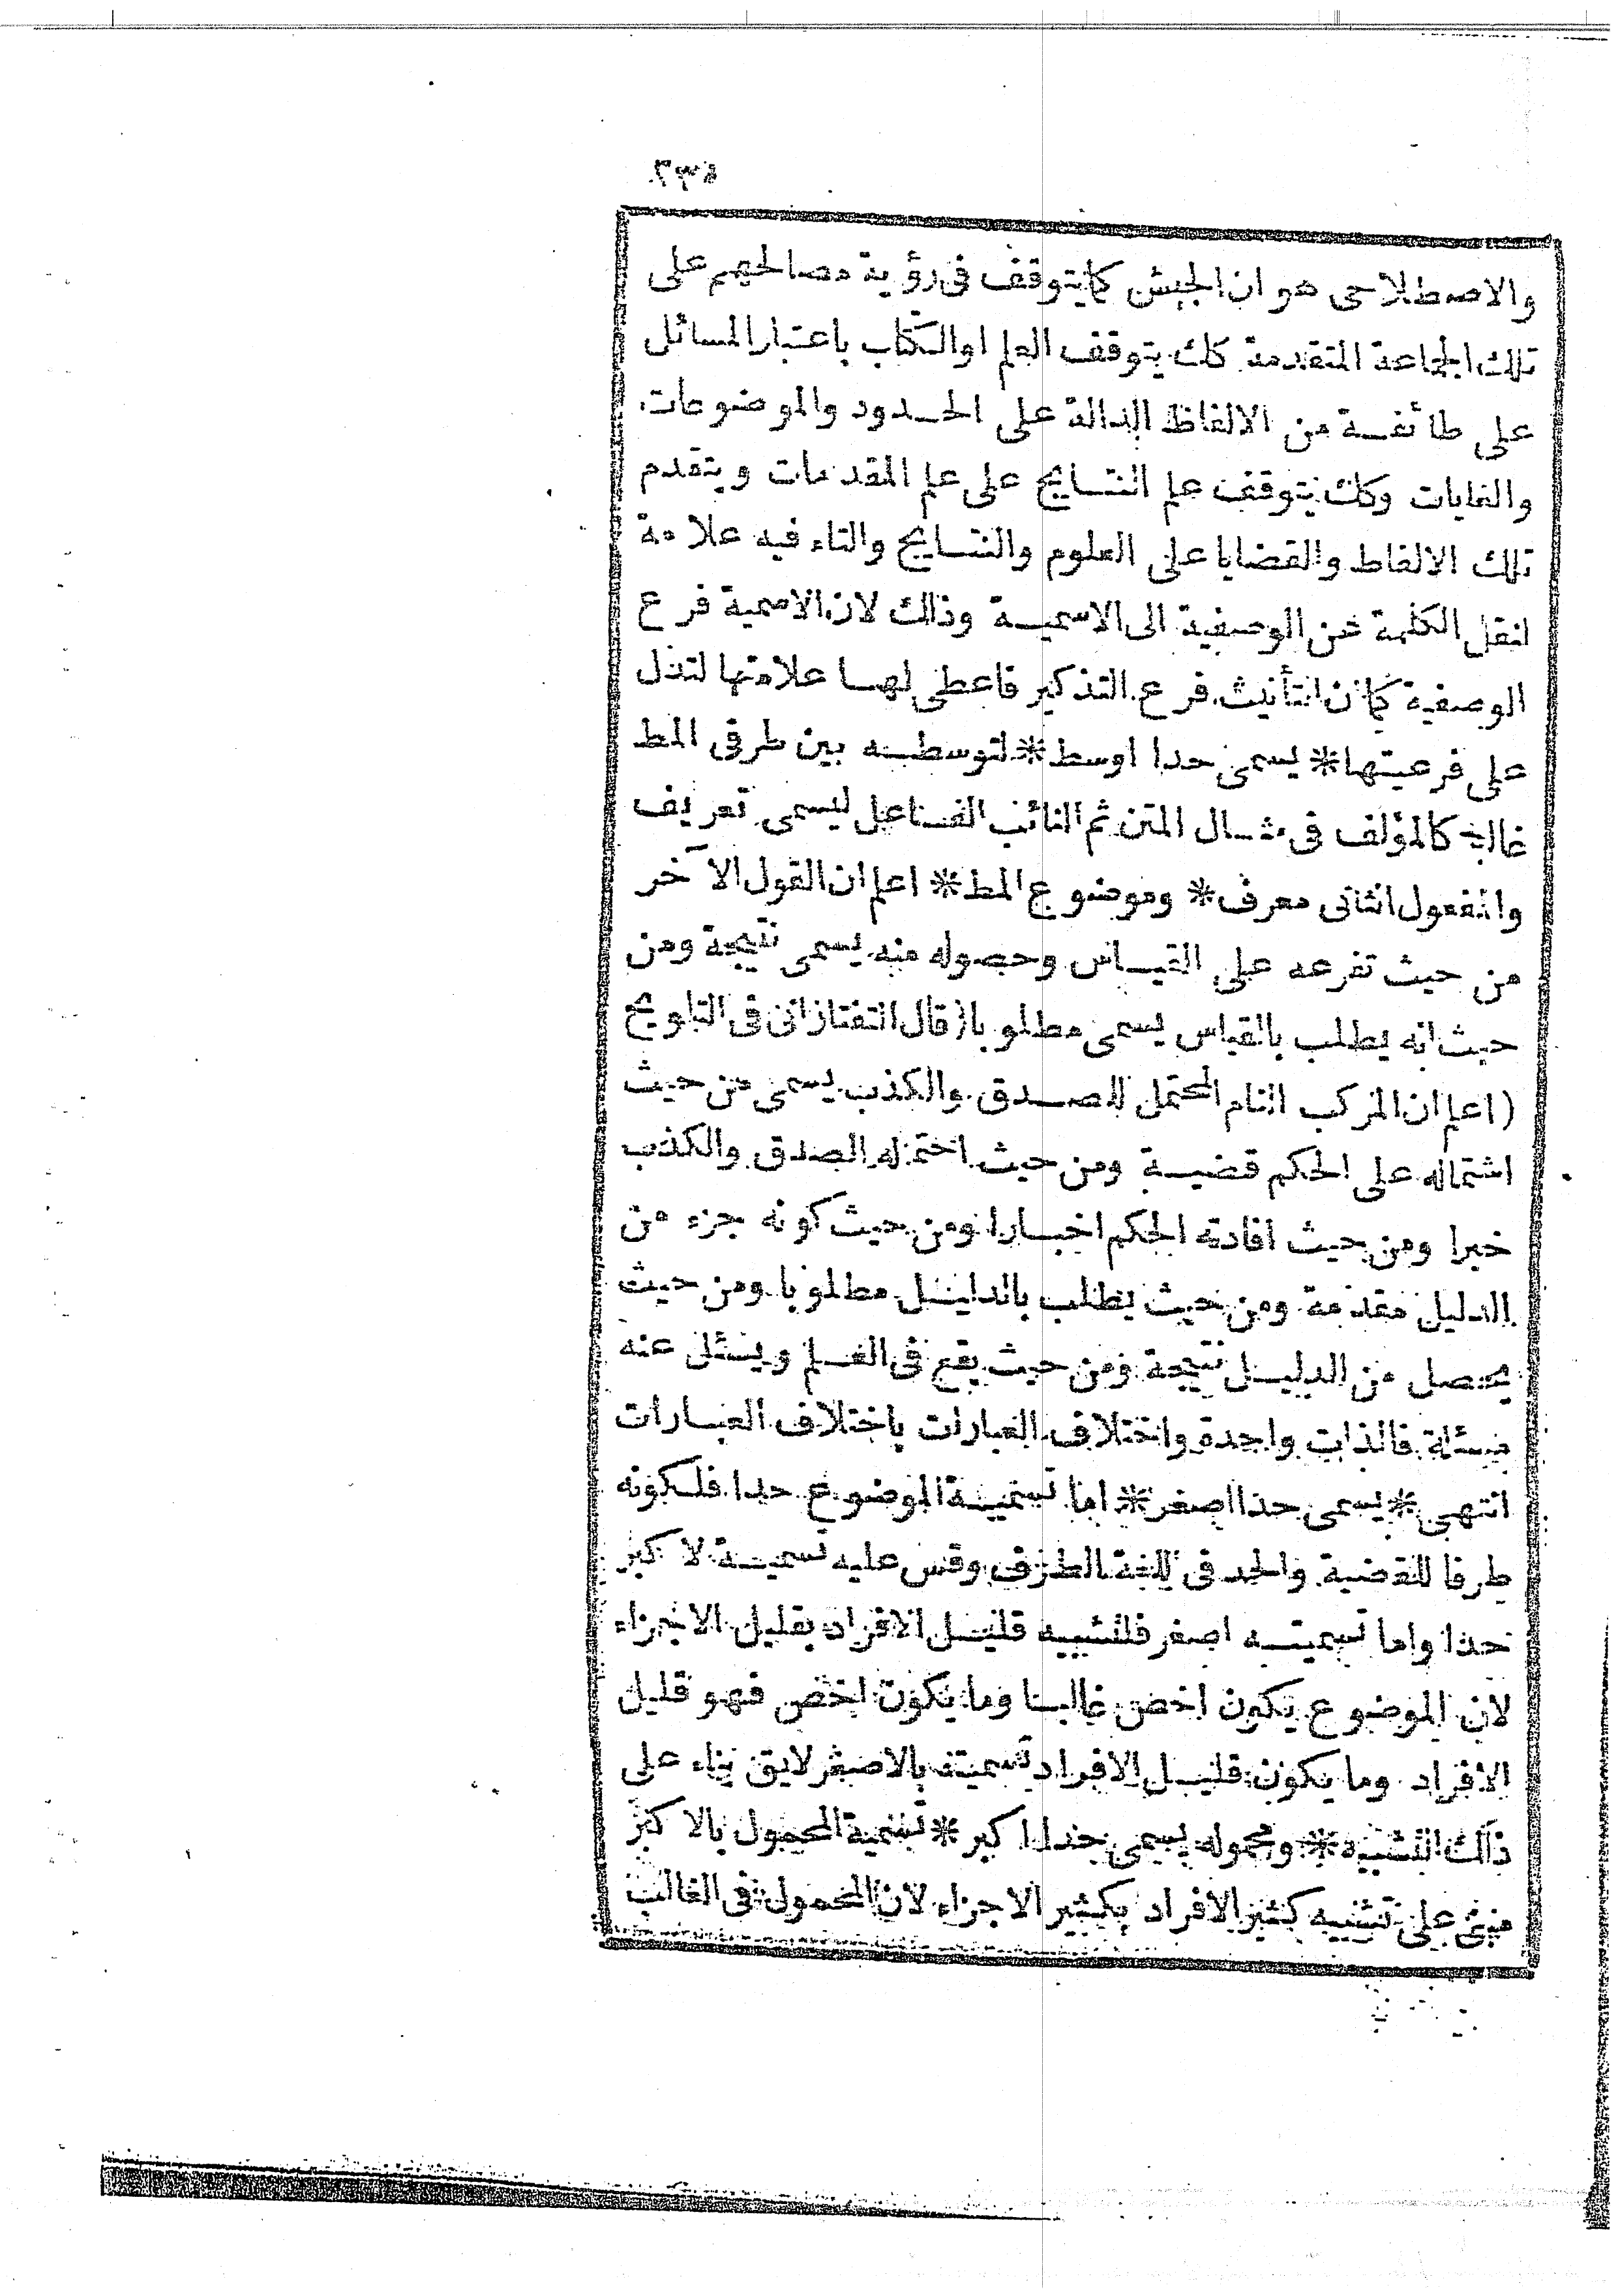 ٢٣٤
والاصطلاحى هو ان الجيش كمايتوقف فى رؤية مصالحهم على
تلك الجماعة المتقدمة كك يتوقف العلم اوالكتاب باعتبار المسائل
على طائفة من الالفاظ الدالة على الحدود والموضوعات
والغايات وكك يتوقف علم النتايج على علم المقدمات ويتقدم
تلك الالفاط والقضايا على العلوم والنتايج والتاء فيه علامة
لنقل الكلمة من الوصفية الى الاسمية وذلك لان الاسمية فرع
الوصفية كمان التأنيث فرع التذكير فاعطى لها علامتها لتدل
على فرعيتها * يسمى حدا اوسط * لتوسطه بين طرفى المط
غالبا كالمؤلف فى مثال المتن ثم النائب الفاعل ليسمى تعريف
والمفعول الثانى معرف * وموضوع المط * اعلم ان القول الآخر
من حيث تفرعه على القياس وحصوله منه يسمى نتيجة ومن
حيث انه يطلب بالقياس يسمى مطلوبا (قال التفتازانى فى التلويح
(اعلم ان المركب التام المحتمل للصدق والكذب يسمى من حيث
اشتماله على الحكم قضية ومن حيث احتماله الصدق والكذب
خبرا ومن حيث افادته الحكم اخبارا ومن حيث كونه جزء من
الدليل مقدمة ومن حيث يطلب بالدليل مطلوبا ومن حيث
يحصل من الدليل نتيجة ومن حيث يقع فى العلم ويسئل عنه
مسئلة فالذات واحدة واختلاف العبارات باختلاف العبارات
انتهى * يسمى حدا اصغر * اما تسمية الموضوع حدا فلكونه
طرفا للقضية والحد فى اللغة الطرف وقس عليه تسمية لاكبر
حدا واما تسميته اصغر فلتشبيه قليل الافراد بقليل الاجزاء
لان الموضوع يكون اخص غالبا وما يكون اخص فهو قليل
الافراد وما يكون قليل الافراد تسميته بالاصغر لايق بناء على
ذلك التشبيه * ومحموله يسمى حدا اكبر * تسمية المحمول بالاكبر
مبنى على تشبيه كثير الافراد بكثير الاجزاء لان المحمول فى الغالب